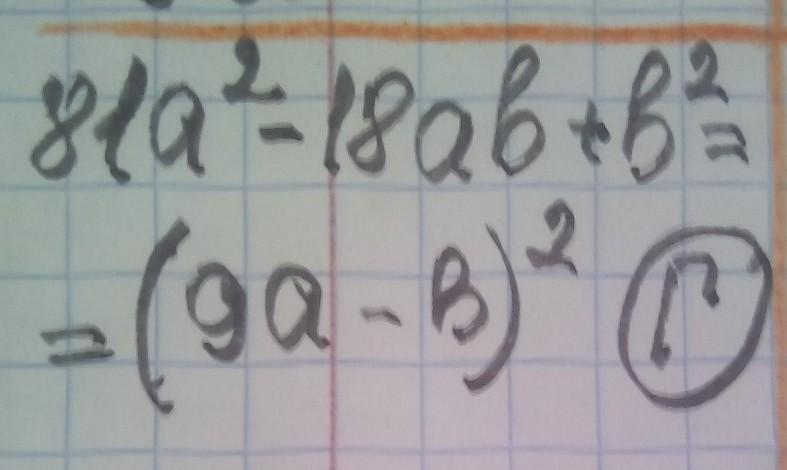 81a² - 18ab + b² =
= (9a - b)² Г